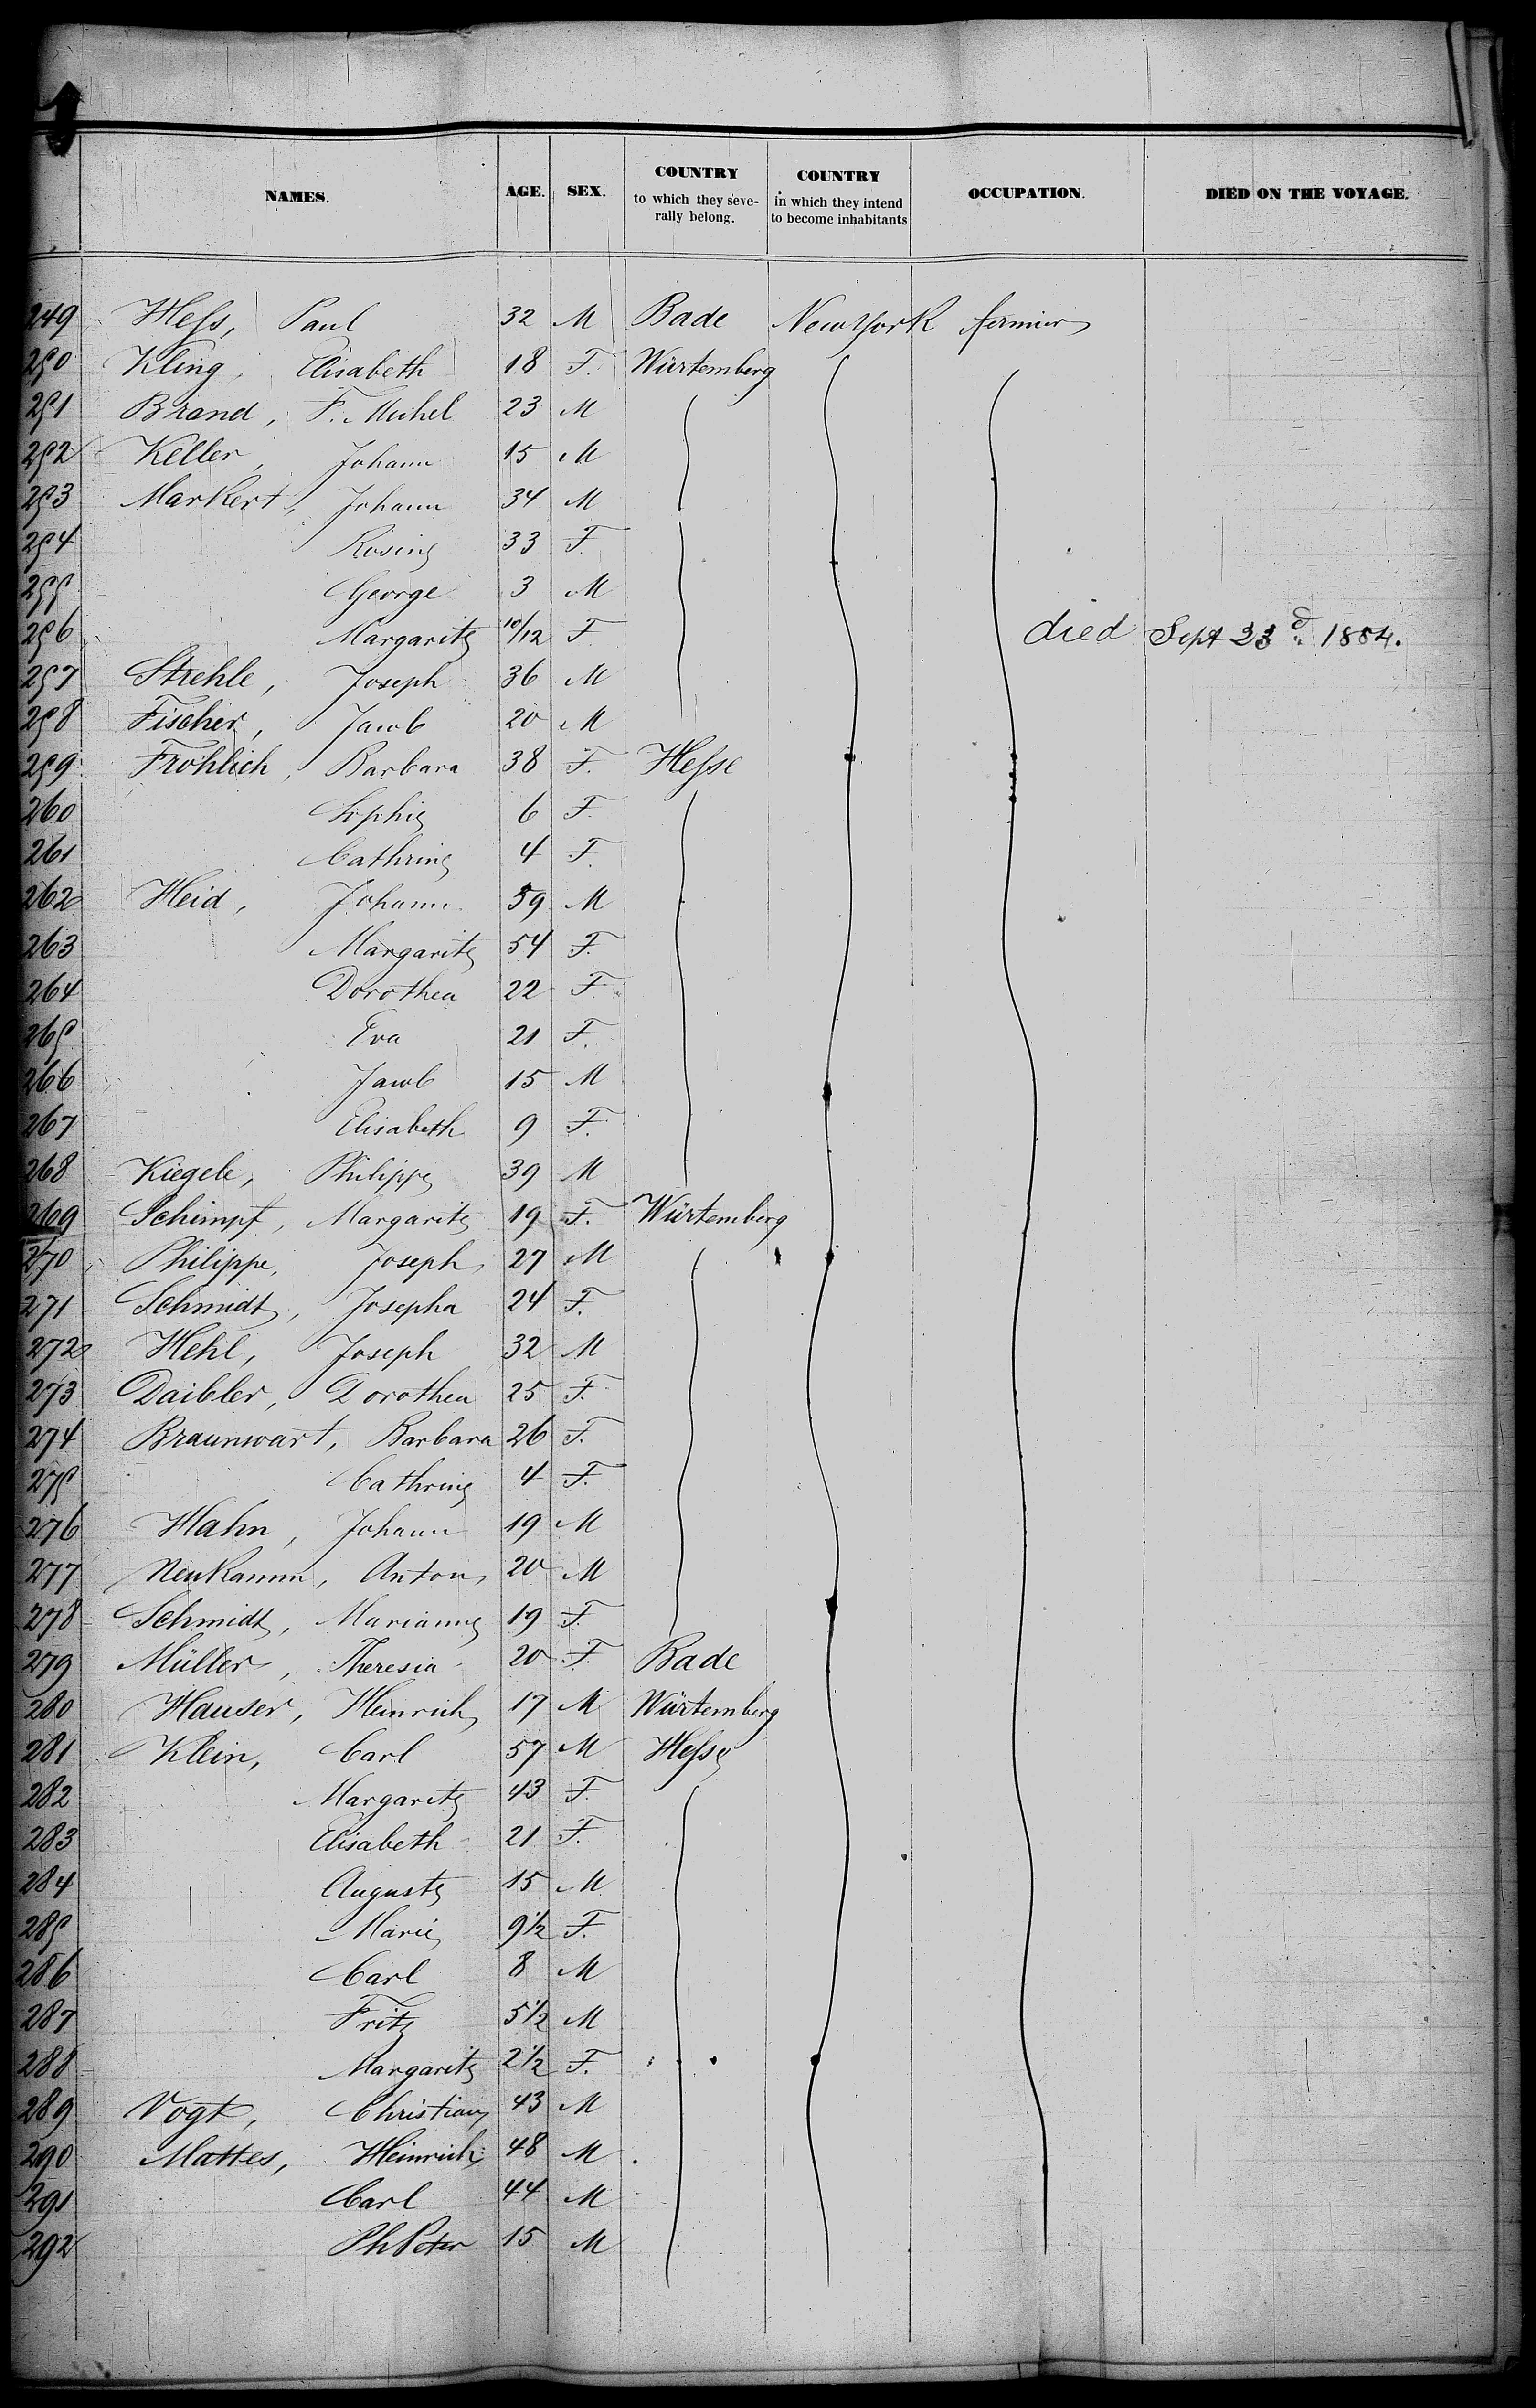 NAMES. AGE. SEX. COUNTRY to which they seve- rally belong. COUNTRY in which they intend to become inhabitants OCCUPATION. DIED ON THE VOYAGE.
249 Hess, Paul 32 M Bade New York fermier
250 Kling, Elisabeth 18 F. Würtemberg
251 Brand, F. Michel 23 M
252 Keller, Johann 15 M
253 Markert, Johann 34 M
254 Rosine 33 F.
255 George 3 M
256 Margarite 10/12 F died Sept 23d 1854.
257 Strehle, Joseph 36 M
258 Fischer, Jacob 20 M
259 Fröhlich, Barbara 38 F. Hesse
260 Sophie 6 F.
261 Cathrine 4 F.
262 Heid, Johann 59 M
263 Margarite 54 F.
264 Dorothea 22 F.
265 Eva 21 F.
266 Jacob 15 M
267 Elisabeth 9 F.
268 Kiegele, Philippe 39 M
269 Schimpf, Margarite 19 F. Würtemberg
270 Philippe, Joseph 27 M
271 Schmidt, Josepha 24 F.
272 Hehl, Joseph 32 M
273 Daibler, Dorothea 25 F.
274 Braunwart, Barbara 26 F.
275 Cathrine 4 F.
276 Hahn, Johann 19 M
277 Neukamm, Anton 20 M
278 Schmidt, Marianne 19 F.
279 Müller, Theresia 20 F. Bade
280 Hauser, Heinrich 17 M Würtemberg
281 Klein, Carl 57 M Hesse
282 Margarite 43 F.
283 Elisabeth 21 F.
284 Auguste 15 M
285 Marie 9 1/2 F.
286 Carl 8 M
287 Fritz 5 1/2 M
288 Margarite 2 1/2 F.
289 Vogt, Christian 43 M
290 Mattes, Heinrich 48 M
291 Carl 44 M
292 Ph Peter 15 M